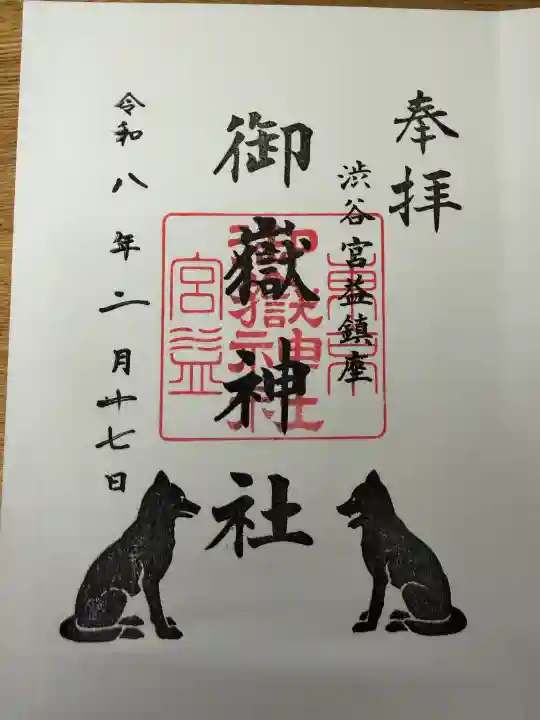 奉拝
渋谷宮益鎮座
御嶽神社
令和八年二月十七日
東京
御嶽神社
宮益